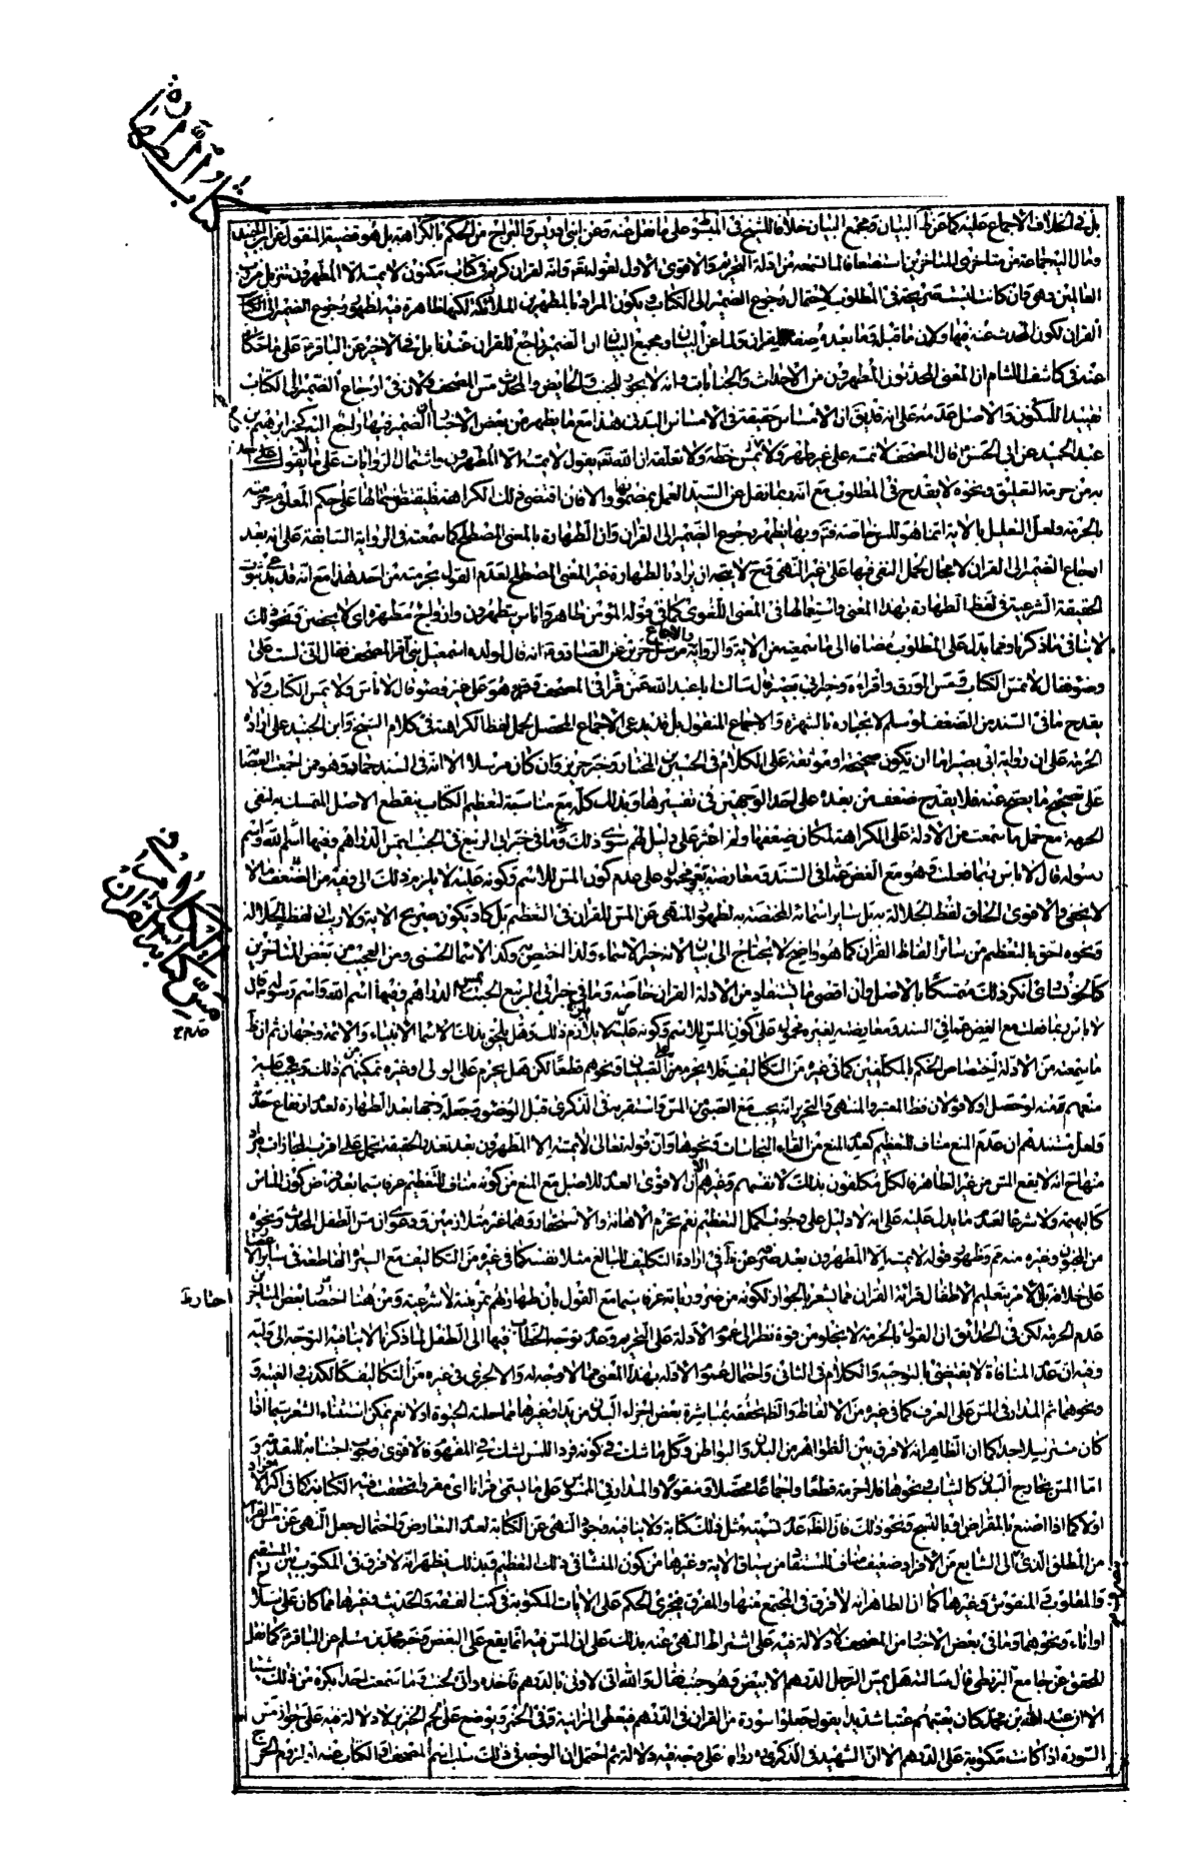 كتاب الطهارة
بل في الخلاف الاجماع عليه كما عن ظ البيان ومجمع البيان خلافا للشيخ في المبسوط على ما نقل عنه وعن ابني ادريس والبراج من الحكم بالكراهة بل هو قضية المنقول عن ابن الجنيد
ومال اليه جماعة من متاخري المتاخرين استضعافا لما تسمعه من ادلة التحريم والاقوى الاول لقوله تعالى وانه لقران كريم في كتاب مكنون لا يمسه الا المطهرون تنزيل من رب
العالمين وهو وان كانت ليست صريحة في المطلوب لاحتمال رجوع الضمير الى الكتاب ويكون المراد بالمطهرين الملائكة لكنها ظاهرة فيه لظهور رجوع الضمير الى
القران لكون المحدث عنه فيها ولان ما قبله وما بعده صفة للقران ولما عن التبيان ومجمع البيان ان الضمير راجع للقران عندنا بل في الاخير عن الباقر ع على ما حكاه
عنه في كاشف اللثام ان المعنى المطهرون من الاحداث والجنابات وانه لا يجوز للجنب والحايض والمحدث مس المصحف ولان في ارجاع الضمير الى الكتاب
تقييدا للمكنون والاصل عدمه على انه قد يق ان الامساس حقيقة في الامساس البدني هذا مع ما يظهر من بعض الاخبار ان الضمير فيها راجع اليه كخبر ابرهيم بن
عبد الحميد عن ابي الحسن قال المصحف لا تمسه على غير طهر ولا تمس خطه ولا تعلقه ان الله تعالى يقول لا يمسه الا المطهرون واشتمال الروايات على ما لا يقول
به من حرمة التعليق ونحوه لا يقدح في المطلوب مع انه ربما نقل عن السيد العمل بمضمونها والا فان اقتضى ذلك الكراهة فليقتض
بالحرمة ولعل التعليل بالاية انما هو للمس خاصة فتم وبها يظهر رجوع الضمير الى القران وان الطهارة بالمعنى المصطلح كما سمعته في الرواية السابقة على انه بعد
ارجاع الضمير الى القران لا مجال لحمل النفي فيها على غير النهي وح لا يتجه ان يراد بالطهارة غير المعنى المصطلح لعدم القول بحرمته من احد هذا مع انه قد يدعى ثبوت
الحقيقة الشرعية في لفظ الطهارة بهذا المعنى واستعمالها في المعنى اللغوي كما في قوله المؤمن طاهر واناس يتطهرون وازواج مطهرة اي لا يحضن ونحو ذلك
لا ينافي ما ذكرنا ومما يدل على المطلوب مضافا الى ما سمعته من الاية والرواية مرسل حريز عن الصادق ع انه قال لولده اسمعيل يا بني اقرا المصحف فقال اني لست على
وضوء فقال لا تمس الكتاب ومس الورق واقراه وخبر ابي بصير قال سالت ابا عبد الله عمن قرا في المصحف وهو على غير وضوء قال لا باس ولا يمس الكتاب ولا
يقدح ما في السند من الضعف لو سلم لانجباره بالشهرة والاجماع المنقول بل قد يدعى الاجماع المحصل لحمل لفظ الكراهة في كلام الشيخ وابن الجنيد على ارادة
الحرمة على ان رواية ابي بصير اما ان يكون صحيحة او موثقة على الكلام في الحسين بن المختار وخبر حريز وان كان مرسلا الا انه في السند حماد وهو ممن اجمعت العصابة
على تصحيح ما يصح عنه فلا يقدح ضعف من بعده على احد الوجهين في تفسيرها وبذلك كله مع مناسبة لتعظيم الكتاب ينقطع الاصل المتمسك به لنفي
الحرمة مع حمل ما سمعت من الادلة على الكراهة لمكان ضعفها ولم اعثر على دليل لهم سوى ذلك وما في خبر ابي الربيع في الجنب يمس الدراهم وفيها اسم الله واسم
رسوله قال لا باس ربما فعلت وهو مع الغض عما في السند ومعارضته بغيره محمول على عدم كون المس للاسم وكونه عليه لا يلزم ذلك الى وفيه من الضعف ما لا
لا يخفى والاقوى الحاق لفظ الجلالة به بل ساير اسمائه المختصة به لظهور النهي عن المس للقران في التعظيم بل كاد يكون صريح الاية ولا ريب ان لفظ الجلالة
ونحوه احق بالتعظيم من سائر الفاظ القران كما هو واضح لا يحتاج الى بيان
كالخونساري انكر ذلك متمسكا بالاصل وان اقصى ما يستفاد من الادلة القران خاصة وما في خبر ابي الربيع الجنب يمس الدراهم وفيها اسم الله واسم رسوله قال
لا باس ربما فعلت مع الغض عما في السند ومعارضته بغيره محمول على كون المس للاسم وكونه عليه لا يلزم ذلك وهل يلحق بذلك الاسماء الانبياء والائمة وجهان ثم ان ظ
ما سمعته من الادلة اختصاص الحكم بالمكلفين كما في غيره من التكاليف فلا يحرم من الصبيان ونحوهم قطعا لكن هل يحرم على الولي او غيره تمكينهم من ذلك ويجب عليه
منعهم منه لو حصل او لا قولان فظ المعتبر والمنتهى والتحرير انه يجب منع الصبي من المس واستقربه في الذكرى قبل الوضوء وجعل وجها بعد الطهارة لعدم ارتفاع حدثه
ولعل مستندهم ان عدم المنع مناف للتعظيم كعدم المنع من القاء النجاسات ونحوها وان قوله تعالى لا يمسه الا المطهرون بعد تعذر الحقيقة يحمل على اقرب المجازات
منها ح انه لا يقع المس من غير الطاهر فالكل مكلفون بذلك لانفسهم وغيرهم الا ان الاقوى العدم للاصل مع المنع من كونه مناف للتعظيم عرفا سيما بعد فرض كون الماس
كالبهيمة ولا شرعا لعدم ما يدل عليه على انه لا دليل على وجوب كل التعظيم نعم يحرم الاهانة والاستحقار وهما غير متلازمين ودعوى ان مس الطفل المحدث ونحوه
من المجنون وغيره منه مم وظهور قوله لا يمسه الا المطهرون بعد صرفه عن ظاهره في ارادة التكليف للبالغ مثلا نفسه كما في غيره من التكاليف مع السيرة القاطعة في ساير الاعصار
على خلافه بل الامر بتعليم الاطفال قرائة القران مما يشعر بالجواز لكونه من ضرورياته عرفا سيما مع القول بان طهارتهم تمرينية لا شرعية ومن هنا اختار بعض المتاخرين
عدم الحرمة لكن في الحدائق ان القول بالحرمة لا يخلو من قوة نظرا الى عموم الادلة على التحريم وعدم توجه الخطاب فيها الى الطفل لما ذكرنا لا ينافيه التوجه الى وليه
وفيه ان عدم المنافاة لا يقتضي بالتوجيه والكلام في الثاني واحتمال عموم الادلة بهذا المعنى مما لا وجه له والا لجرى في غيره من التكاليف كالكذب والغيبة و
ونحوهما ثم المدار في المس على العرف كما في غيره من الالفاظ والظ تحققه بمباشرة بعض اجزاء البدن من يد او غيرها مما حلته الحيوة اولا نعم يمكن استثناء الشعر سيما اذا
كان مسترسلا جدا كما ان الظاهر انه لا فرق بين الظواهر من البدن والبواطن وكل ما شك في كونه فردا للمس
اما المس بخارج البدن كالثياب ونحوها فلا حرمة قطعا واجماعا محصلا ومنقولا والمدار في الممسوس على ما يسمى قرانا اي مقروا تحققت فيه الكتابة كما في اكثر الافراد
او لا كما اذا صنع بالمقراض او بالنسج ونحو ذلك فان الظ عدم تسمية مثل ذلك كتابة ولا ينافيه وجود النهي عن الكتابة لعدم التعارض واحتمال جعل النهي عن مس القران
من المطلق الذي الى الشايع من الافراد ضعيف مناف للمستفاد من سياق الاية وغيرها من كون المنشا في ذلك التعظيم وبذلك يظهر انه لا فرق في المكتوب بين المستقيم
والمقلوب والمنقوش وغيرها كما ان الظاهر انه لا فرق في المجتمع منها والمفرق فيجري الحكم على الايات المكتوبة في كتب الفقه والحديث وغيرها مما كان على
او اناء ونحوهما وما في بعض الاخبار من المصحف لا دلالة فيه على اشتراط النهي عنه بذلك على ان المس فيه انما يقع على البعض وخبر محمد بن مسلم عن الباقر ع كما نقل
المحقق عن جامع البزنطي قال سالته هل يمس الرجل الدرهم الابيض وهو جنب فقال والله اني لاوتى بالدرهم فاخذه واني لجنب وما سمعت احدا يكره من ذلك شيئا
الا ان عبد الله بن محمد كان يعيبهم عيبا شديدا يقول جعلوا سورة من القران في الدرهم فيعطى الزانية وفي الخمر ويوضع على لحم الخنزير لا دلالة فيه على جواز مس
السورة اذا كانت مكتوبة على الدرهم الا ان الشهيد في الذكرى رواه على وجه فيه دلالة ثم احتمل ان الوجه في ذلك سلب اسم المصحف او الكتاب عنه او لزوم الحرج
الكلام في
مس كتابة القران